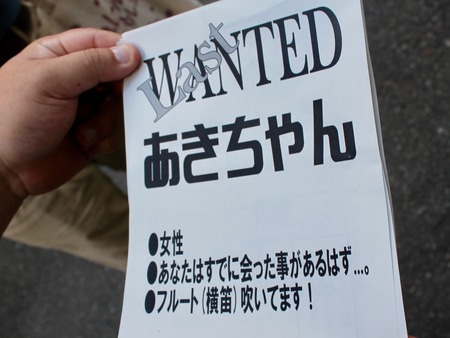 WANTED
Last
あきちゃん
●女性
●あなたはすでに会った事があるはず...。
●フルート(横笛)吹いてます!